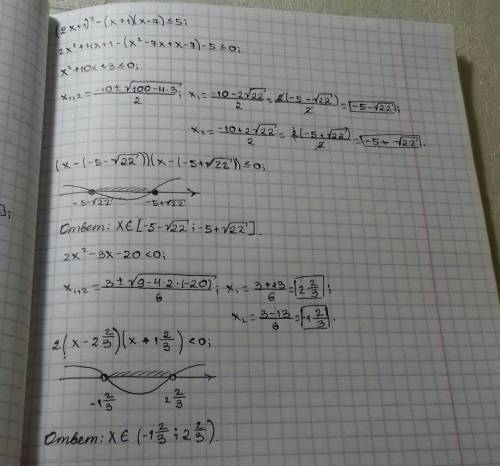 (2x+1)² - (x+1)(x-7) ≤ 5;
2x²+4x+1 - (x²-7x+x-7) - 5 ≤ 0;
x²+10x+3 ≤ 0;
x₁,₂ = (-10 ± √(100-4·3))/2; x₁ = (-10-2√22)/2 = 2(-5-√22)/2 = -5-√22;
x₂ = (-10+2√22)/2 = 2(-5+√22)/2 = -5+√22.
(x-(-5-√22))(x-(-5+√22)) ≤ 0;
-5-√22 -5+√22
Ответ: x∈[-5-√22; -5+√22].
2x²-3x-20<0;
x₁,₂ = (3 ± √(9-4·2·(-20)))/6; x₁ = (3+13)/6 = 2 2/3;
x₂ = (3-13)/6 = -1 2/3.
2(x-2 2/3)(x+1 2/3) <0;
-1 2/3 2 2/3
Ответ: x∈(-1 2/3; 2 2/3).